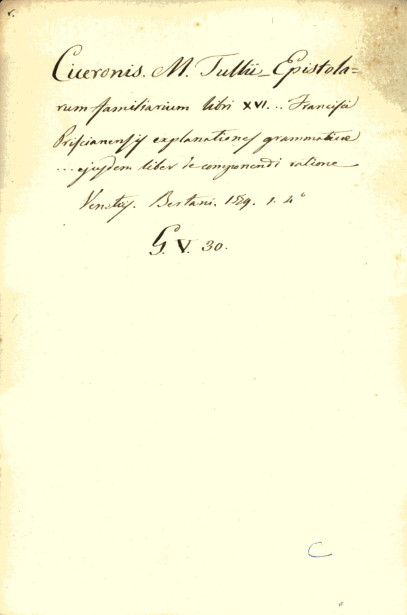 Ciceronis. M. Tullii_Epistola=
rum familiarium libri XVI... Francisci
Priscianensis explanationes grammaticæ
... ejusdem liber de componendi ratione
Venetiis. Bertani. 1. 4°
G. V. 30.
C